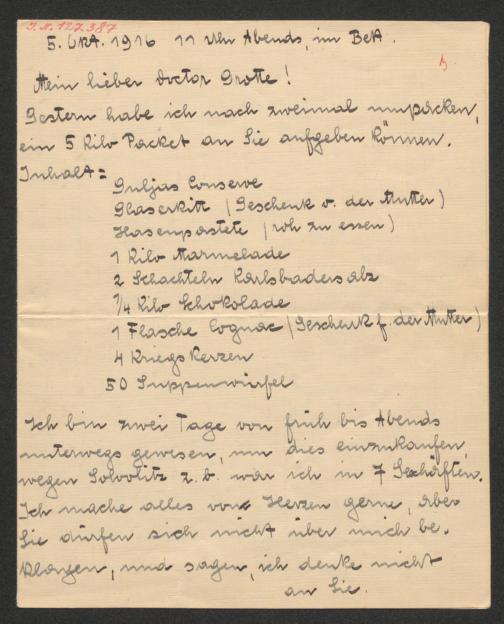 I.N. 127.387
5. Okt. 1916 11 Uhr Abends, im Bett.
b
Mein lieber Doctor Grotte!
Gestern habe ich nach zweimal umpacken,
ein 5 Kilo Packet an Sie aufgeben können.
Inhalt =
Guljas Conserve
Glaserkitt (Geschenk v. der Mutter)
Hasenpastete (roh zu essen)
1 Kilo Marmelade
2 Schachteln Karlsbadersalz
1/4 Kilo Schokolade
1 Flasche Cognac (Geschenk f. der Mutter)
4 Kriegskerzen
50 Suppenwürfel
Ich bin zwei Tage von früh bis Abends
unterwegs gewesen, um dies einzukaufen,
wegen z.b. war ich in 7 Geschäften.
Ich mache alles von Herzen gerne, aber
Sie dürfen sich nicht über mich be-
klagen, und sagen, ich denke nicht
an Sie.